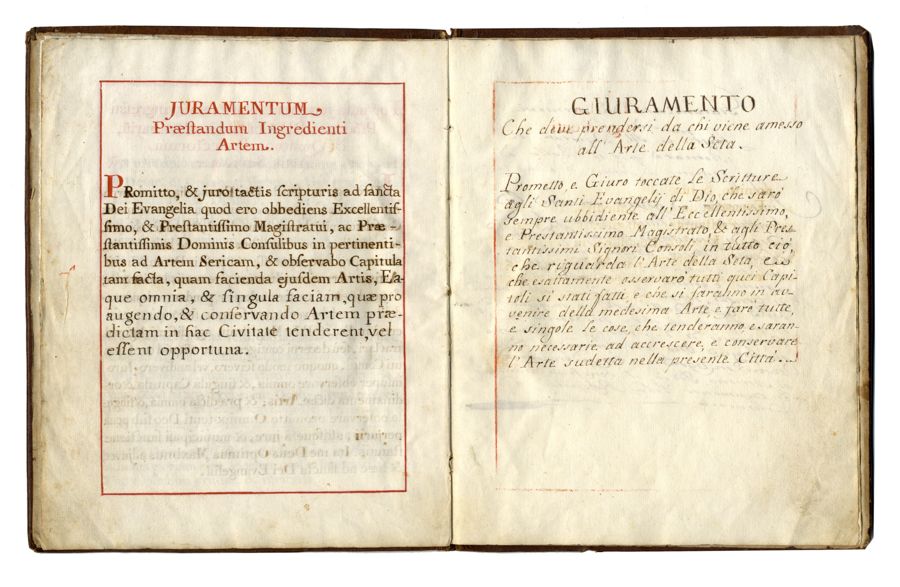 JURAMENTUM
Præstandum Ingredienti
Artem.
PRomitto, & juro tactis ſcripturis ad ſancta
Dei Evangelia quod ero obbediens Excellentiſ-
ſimo, & Preſtantiſſimo Magiſtratui, ac Præ-
ſtantiſſimis Dominis Conſulibus in pertinenti-
bus ad Artem Sericam, & obſervabo Capitula
tam facta, quam facienda ejuſdem Artis, Ea-
que omnia, & ſingula faciam, quæ pro
augendo, & conſervando Artem præ-
dictam in hac Civitate tenderent, vel
eſſent opportuna.
GIURAMENTO
Che deve prendersi da chi viene amesso
all' Arte della Seta.
Prometto, e Giuro toccate le Scritture
agli Santi Evangelij di Dio, che sarò
sempre ubbidiente all' Eccellentissimo,
e Prestantissimo Magistrato, & agli Pres-
tantissimi Signori Consoli, in tutto ciò,
che riguarda l' Arte della Seta, e
che esattamente osservarò tutti quei Capi-
toli si stati fatti, e che si faranno in av-
venire della medesima Arte, e farò tutte,
e singole le cose, che tenderanno, e saran-
no necessarie ad accrescere, e conservare
l' Arte sudetta nella presente Città.